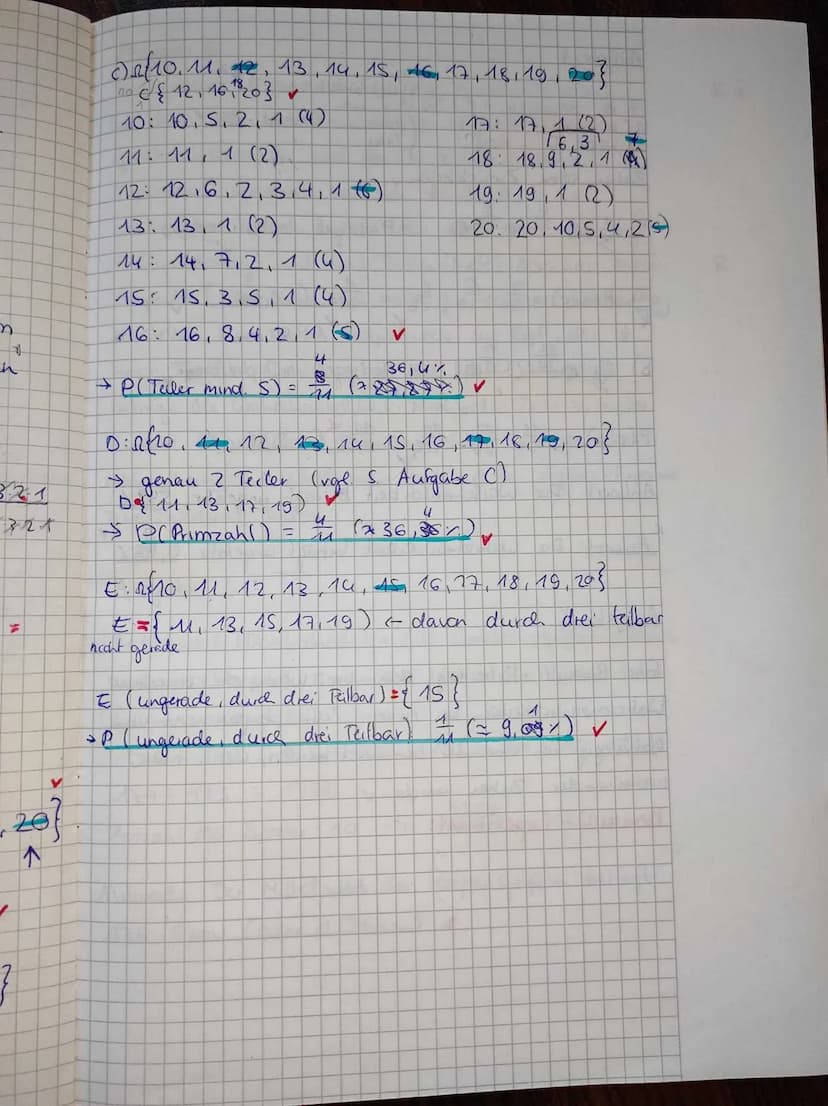 C) Ω{10, 11, 12, 13, 14, 15, 16, 17, 18, 19, 20}
C { 12, 16, 18, 20} ✓
10: 10, 5, 2, 1 (4)
11: 11, 1 (2)
12: 12, 6, 2, 3, 4, 1 (6)
13: 13, 1 (2)
14: 14, 7, 2, 1 (4)
15: 15, 3, 5, 1 (4)
16: 16, 8, 4, 2, 1 (5) ✓
17: 17, 1 (2)
6, 3
18: 18, 9, 2, 1
19: 19, 1 (2)
20: 20, 10, 5, 4, 2 (5)
→ P(Teiler mind. 5) = 4/11 (≈ 36,4%) ✓
D: Ω{10, 11, 12, 13, 14, 15, 16, 17, 18, 19, 20}
→ genau 2 Teiler (vgl. S. Aufgabe C)
D { 11, 13, 17, 19) ✓
→ P(Primzahl) = 4/11 (≈ 36,4 %) ✓
E: Ω{10, 11, 12, 13, 14, 15, 16, 17, 18, 19, 20}
E = { 11, 13, 15, 17, 19) ← davon durch drei teilbar
nicht gerade
E (ungerade, durch drei Teilbar) = { 15 }
→ P (ungerade, durch drei Teilbar) 1/11 (≈ 9,1 %) ✓
321
321
=
, 20}
↑
}